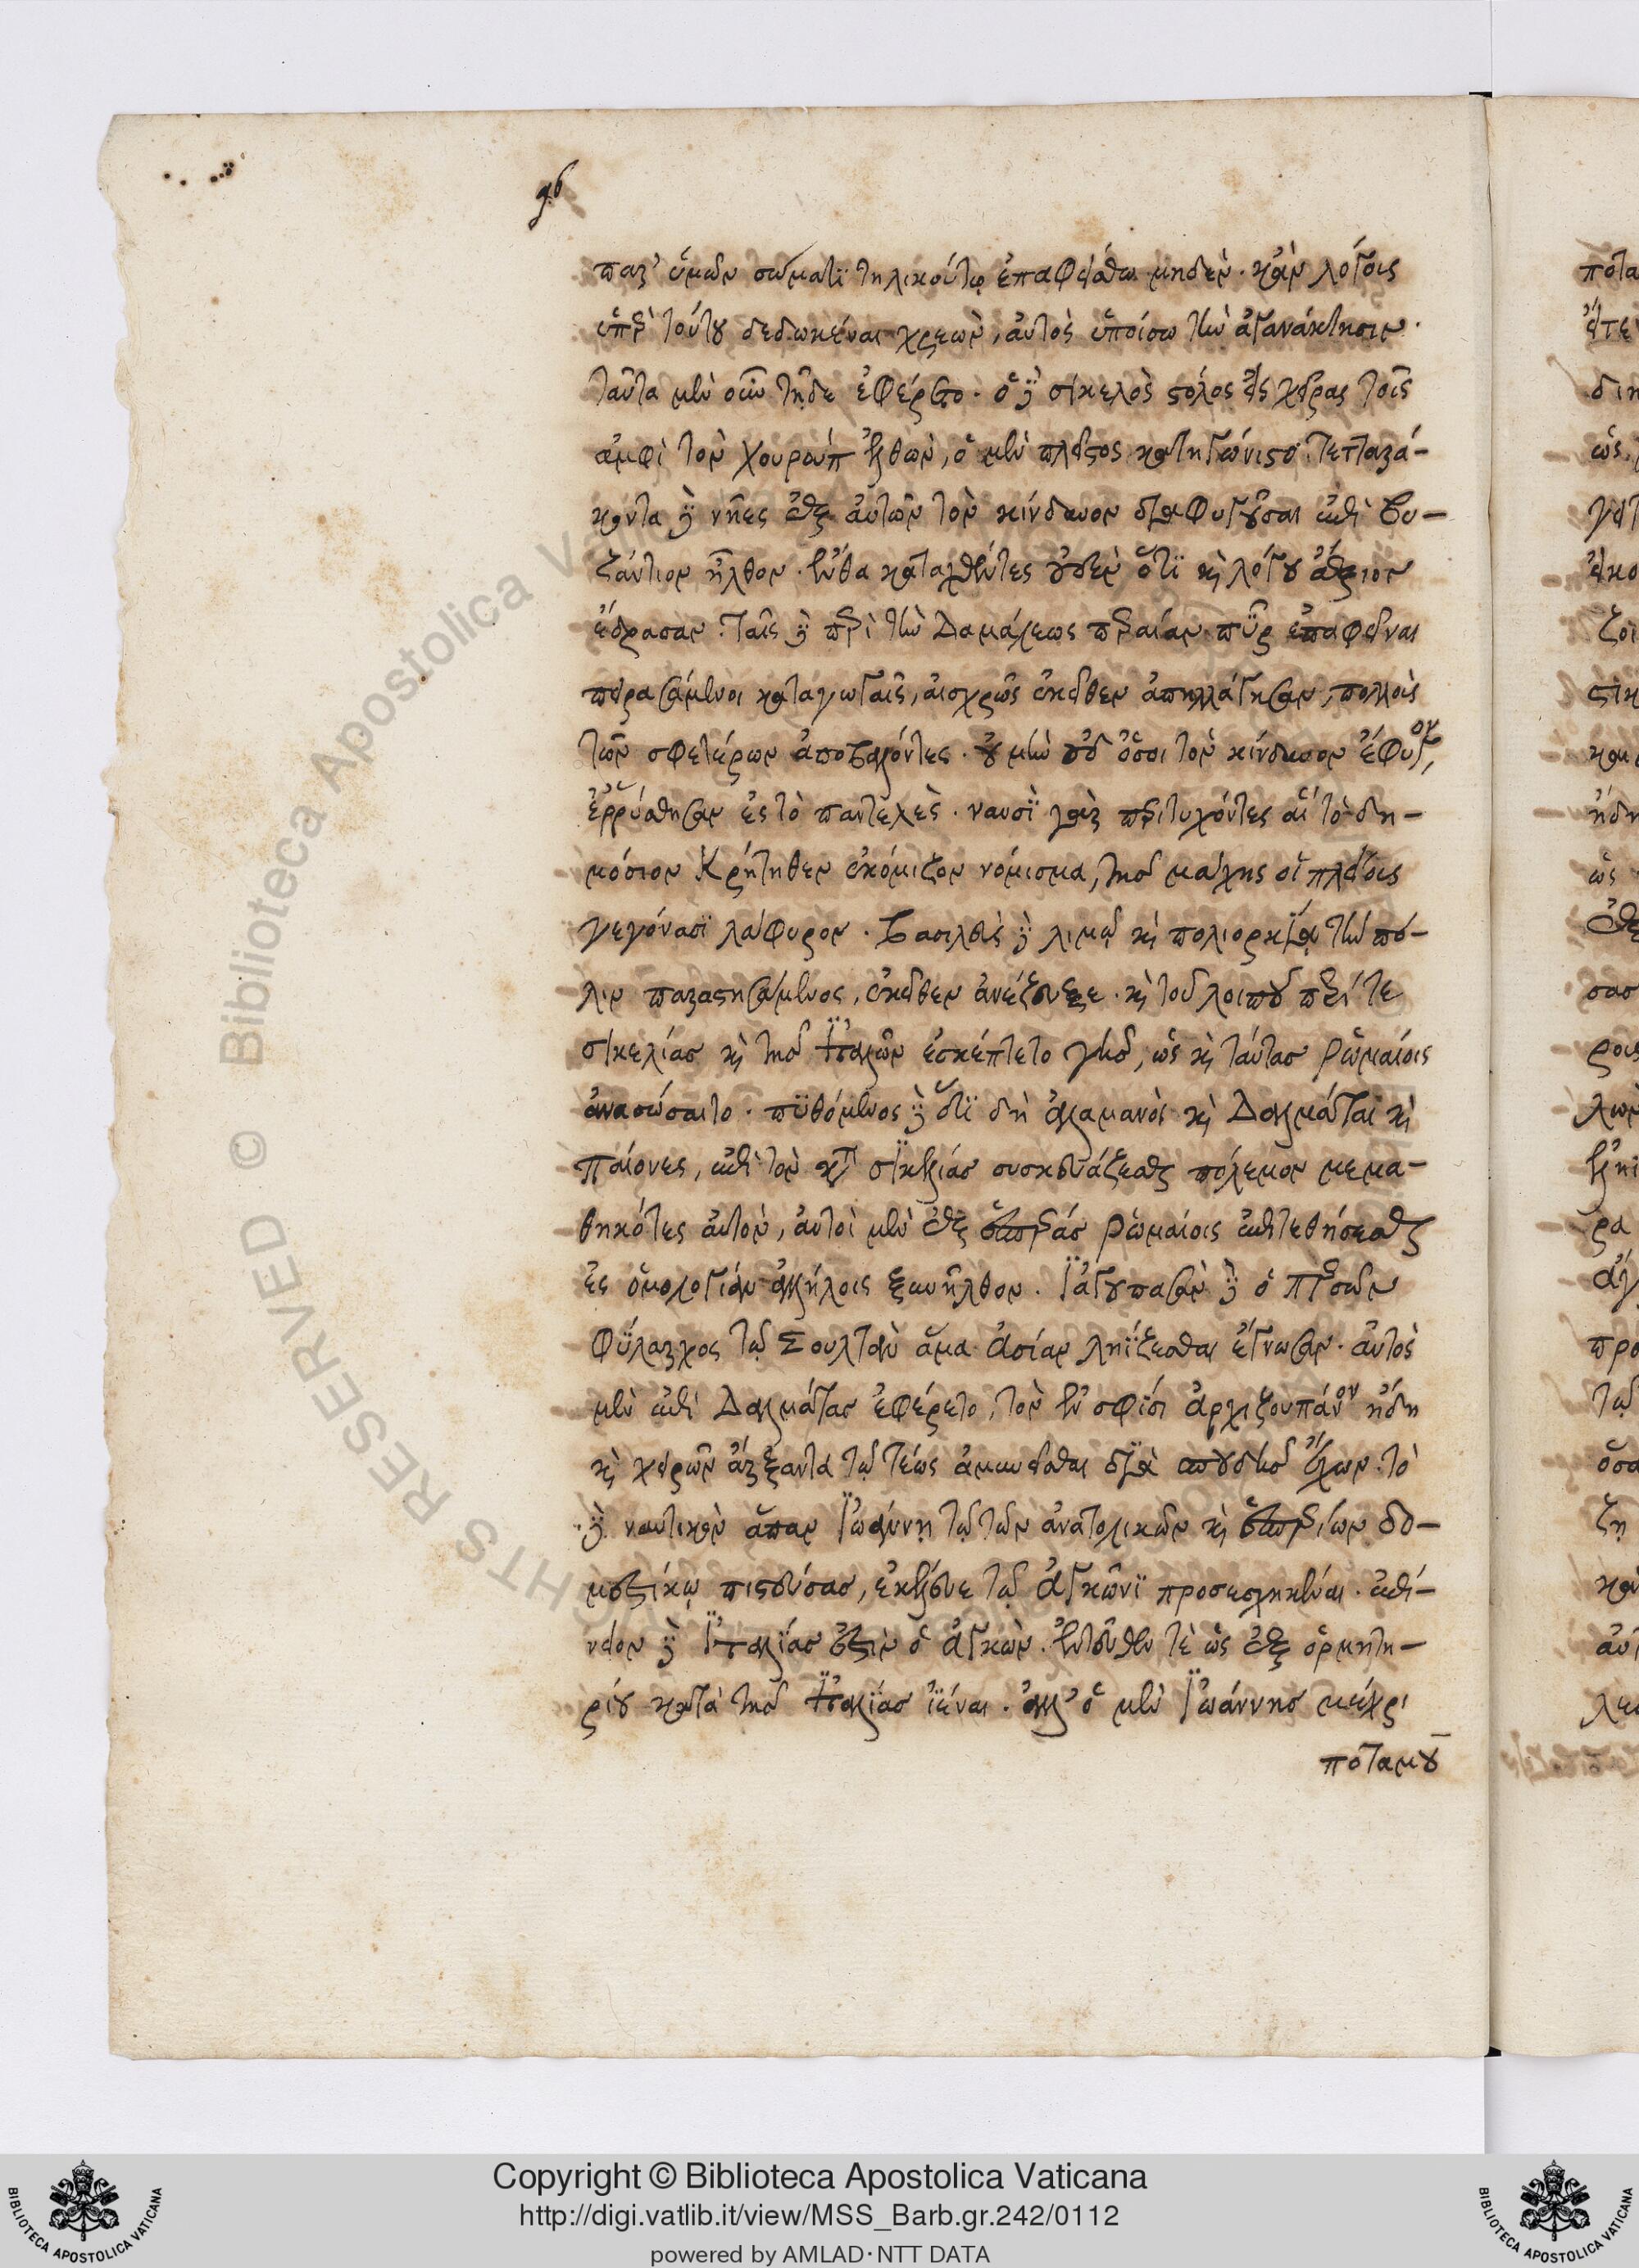 96
παρ' ὑμῶν σώματι τηλικούτῳ ἐπαφείσθω μηδέν. κἂν λόγοις
ὑπὲρ τούτου δεδωκέναι χρεὼν, αὐτὸς ὑποίσω τὴν ἀγανάκτησιν.
ταῦτα μὲν οὖν τῇδε ἐφέρετο. ὁ δὲ σικελὸς στόλος εἰς χεῖρας τοῖς
ἀμφὶ τὸν χουροὺπ ἐλθὼν, ὁ μὲν πλεῖστος κατηγώνιστο. τετταρά-
κοντα δὲ νῆες ἐξ αὐτῶν τὸν κίνδυνον διαφυγοῦσαι ἐπὶ βυ-
ζάντιον ἦλθον. ἔνθα καταχθέντες οὐδὲν ὅτι καὶ λόγου ἄξιον
ἔδρασαν. ταῖς δὲ περὶ τὴν Δαμάλεως περαίαν πῦρ ἐπαφεῖναι
πειρασάμενοι καταγωγαῖς, αἰσχρῶς ἐκεῖθεν ἀπηλλάγησαν, πολλοὺς
τῶν σφετέρων ἀποβαλόντες. οὐ μὴν οὐδ' ὅσοι τὸν κίνδυνον ἔφυγον,
ἐῤῥύσθησαν ἐς τὸ παντελὲς. ναυσὶ γὰρ περιτυχόντες αἳ τὸ δη-
μόσιον Κρήτηθεν ἐκόμιζον νόμισμα, τῆς μάχης οἱ πλείους
γεγόνασι λάφυρον. βασιλεὺς δὲ λιμῷ καὶ πολιορκίᾳ τὴν πό-
λιν παραστησάμενος, ἐκεῖθεν ἀνέζευξε. καὶ τοῦ λοιποῦ περί τε
σικελίας καὶ τῆς Ἰταλῶν ἐσκέπτετο γῆς, ὡς καὶ ταύτας Ῥωμαίοις
ἀνασώσαιτο. πυθόμενος δὲ ὅτι δὴ ἀλαμανοὶ καὶ Δαλμάται καὶ
Παίονες, ἐπὶ τὸν κατὰ σικελίας συσκευάζεσθαι πόλεμον μεμα-
θηκότες αὐτὸν, αὐτοὶ μὲν ἐξ ἑσπέρας Ῥωμαίοις ἐπιτεθήσεσθαι
ἐς ὁμολογίαν ἀλλήλοις ξυνῆλθον. Ἰαγουπασὰν δὲ ὁ Περσῶν
φύλαρχος τῷ Σουλτὰν ἅμα ἀσίαν ληΐζεσθαι ἔγνωσαν. αὐτὸς
μὲν ἐπὶ Δαλμάτας ἐφέρετο, τὸν ἐν σφίσι ἀρχιζουπάνον ἤδη
καὶ χειρῶν ἄρξαντα τῷ τέως ἀμύνεσθαι διὰ σπουδῆς ἔχων. τὸ
δὲ ναυτικὸν ἅπαν Ἰωάννῃ τῷ τῶν ἀνατολικῶν καὶ ἑσπερίων δο-
μεστίκῳ πιστεύσας, ἐκέλευε τῷ ἀγκῶνι προσεσχηκέναι. ἐπί-
νειον δὲ Ἰταλίας ἐστὶν ὁ ἀγκὼν. ἐντεῦθέν τε ὡς ἐξ ὁρμητη-
ρίου κατὰ τῆς Ἰταλίας ἰέναι. ἀλλ' ὁ μὲν Ἰωάννης μέχρι
ποταμοῦ
Copyright © Biblioteca Apostolica Vaticana
http://digi.vatlib.it/view/MSS_Barb.gr.242/0112
powered by AMLAD·NTT DATA